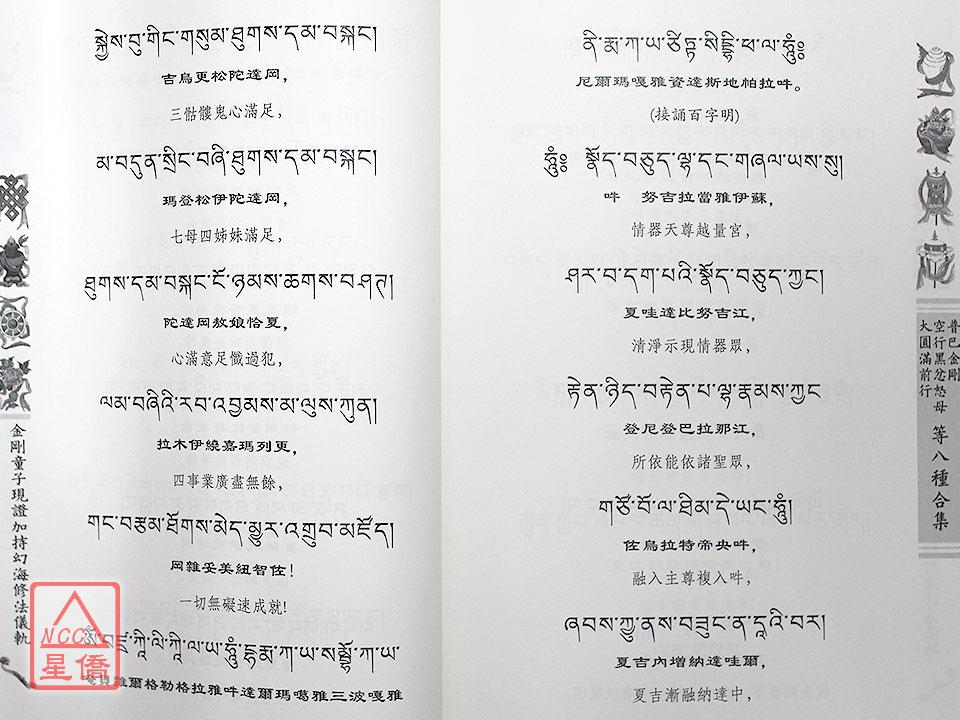 སྐྱེས་བུ་གིང་གསུམ་ཐུགས་དམ་བསྐང།
吉烏更松陀達岡，
三骷髏鬼心滿足，
མ་བདུན་སྲིང་བཞི་ཐུགས་དམ་བསྐང།
瑪登松伊陀達岡，
七母四姊妹滿足，
ཐུགས་དམ་བསྐང་ངོ་ཉམས་ཆགས་བཤགས།
陀達岡敖娘恰夏，
心滿意足懺過犯，
ལམ་བཞིའི་རབ་འབྱམས་མ་ལུས་ཀུན།
拉木伊繞嘉瑪列更，
四事業廣盡無餘，
གང་བརྩམ་ཐོགས་མེད་མྱུར་འགྲུབ་མཛོད།
岡雜妥美紐智佐！
一切無礙速成就!
ༀ་བཛྲ་ཀཱི་ལི་ཀཱི་ལ་ཡ་ཧཱུྃ་དྷརྨ་ཀཱ་ཡ་སམྦྷོ་ཀ་ཡ་
唵貝雜爾格勒格拉雅吽達爾瑪噶雅三波嘎雅
ནི་རྨ་ཀཱ་ཡ་ཙིཏྟ་སིདྡྷི་ཕ་ལ་ཧཱུྃ༔
尼爾瑪嘎雅資達斯地帕拉吽。
(接誦百字明)
ཧཱུྃ༔ སྣོད་བཅུད་ལྷ་དང་གཞལ་ཡས་སུ།
吽 努吉拉當雅伊蘇，
情器天尊越量宮，
ཤར་བ་དག་པའི་སྣོད་བཅུད་ཀྱང།
夏哇達比努吉江，
清淨示現情器眾，
རྟེན་ཉིད་བརྟེན་པ་ལྷ་རྣམས་ཀྱང
登尼登巴拉那江，
所依能依諸聖眾，
གཙོ་བོ་ལ་ཐིམ་དེ་ཡང་ཧཱུྃ།
佐烏拉特帝央吽，
融入主尊複入吽，
ཞབས་ཀྱུ་ནས་བཟུང་ན་དཱའི་བར།
夏吉內增納達哇爾，
夏吉漸融納達中，
金剛童子現證加持幻海修法儀軌
普巴金剛
空行黑忿怒母
大圓滿前行
等八種合集
NCC
星僑